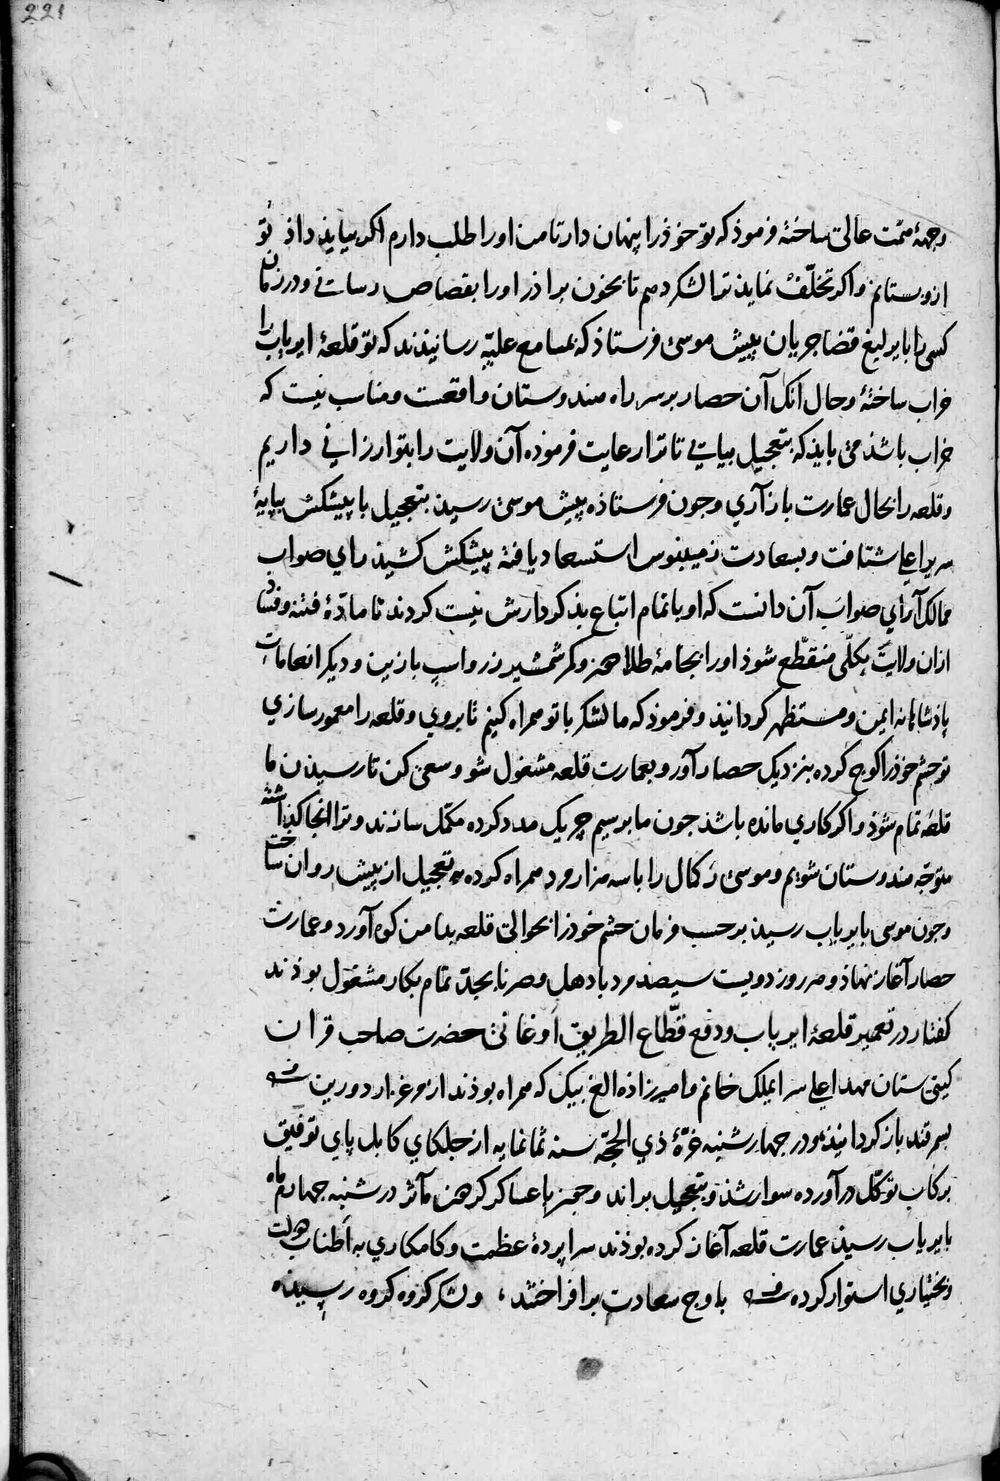 221
وجههٔ همّت عالی ساخته فرموذ که تو خوذ را پنهان دار تا من اورا طلب دارم اکر بیایذ داذ تو
ازو بستانم واکر تخلّف نمایذ ترا لشکر دهم تا بخون براذر اورا بقصاص رسانی ودر زمان
کسی را با یرلیغ قضا جریان پیش موسی فرستاذ که بمسامع علیّه رسانیذند که تو قلعهٔ ایریاب را
خراب ساختهٔ وحال انک آن حصار بر سر راه هندوستان واقعست ومناسب نیست که
خراب باشذ می بایذ که بتعجیل بیائی تا ترا رعایت فرموده آن ولایت را بتو ارزانی داریم
وقلعه را بحال عمارت باز آری وجون فرستاذه پیش موسی رسیذ بتعجیل با پیشکش بپایهٔ
سریر اعلی شتافت وبسعادت زمینبوس استسعاد یافته پیشکش کشیذ رای صواب
ممالک آرای صواب آن دانست که او با تمام اتباع بذ کردارش نیست کردند تا مادّهٔ فتنه وفساد
ازان ولایت بکلّی منقطع شوذ اورا بجامهٔ طلا دوز وکمر شمشیر زر واسب با زین ودیکر انعامات
پاذشاهانه ایمن ومستظهر کردانیذ وفرموذ که ما لشکر با تو همراه کنیم تا بروی وقلعه را معمور سازی
تو حشم خوذ را کوج کرده بنزدیک حصار آور وبعمارت قلعه مشغول شو وسعی کن تا رسیذن ما
قلعه تمام شوذ واکر کاری مانده باشذ جون ما برسیم جریک مدد کرده مکمّل سازند وترا انجا کذاشته
متوجّه هندوستان شویم وموسی رکمال را با سه هزار مرد همراه کرده بتعجیل از پیش روان ساخت
وجون موسی بایریاب رسیذ بر حسب فرمان حشم خوذ را بحوالی قلعه بدامن کوه آورد وعمارت
حصار آغاز نهاذ وهر روز دویست سیصد مرد با دهل وصرنا بجدّ تمام بکار مشغول بوذند
کفتار در تعمیر قلعهٔ ایریاب ودفع قطّاع الطریق اوغانی حضرت صاحب قران
کیتی ستان مهد اعلی سرایملک خانم وامیرزاذه الغ بیک که همراه بوذند از مرغزار دورین
بسمرقند باز کردانیذ ودر جهارشنبه غرّهٔ ذی الحجّه سنه ثمانمایه از جلکای کابل پای توفیق
برکاب توکّل در آورده سوار شذ وبتعجیل براند وجون با عساکر کردون مآثر در شنبه جهارم ماه
بایریاب رسیذ عمارت قلعه آغاز کرده بوذند سراپردهٔ عظمت وکامکاری به اطناب دولت
وبختیاری استوار کرده باوج سعادت بر افراختند ، ولشکر کروه کروه رسیذه